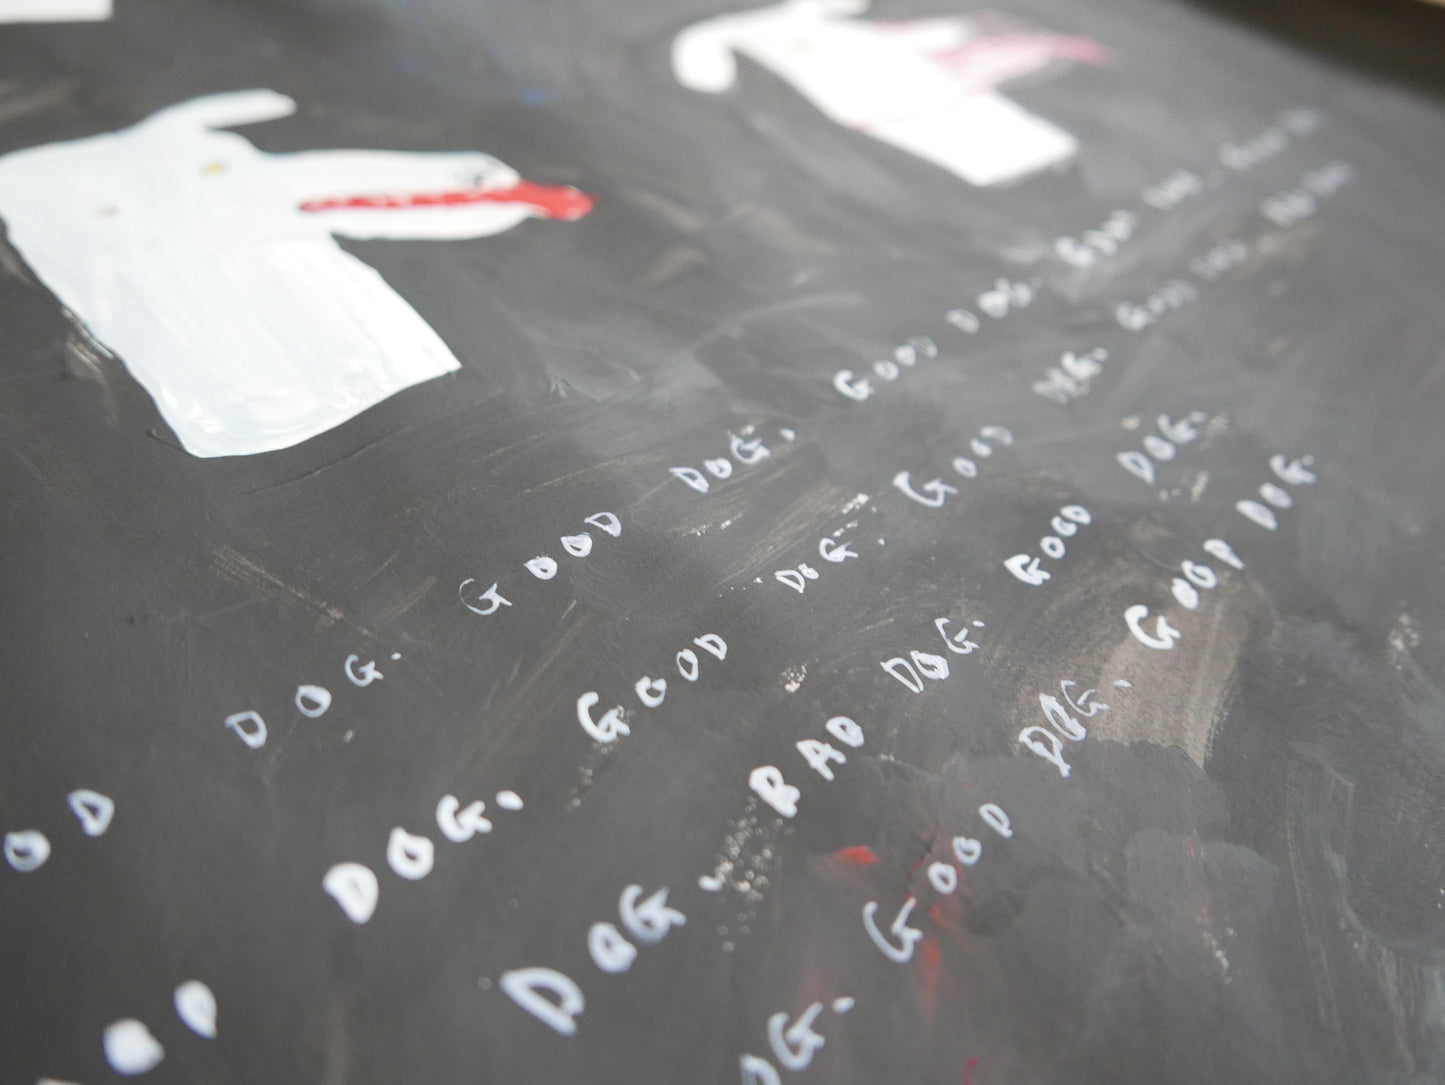 OD DOG. GOOD DOG. GOOD DOG. GOOD DOG.
OD DOG. GOOD DOG. GOOD DOG. GOOD DOG.
DOG. BAD DOG. GOOD DOG.
OG. GOOD DOG. GOOD DOG.